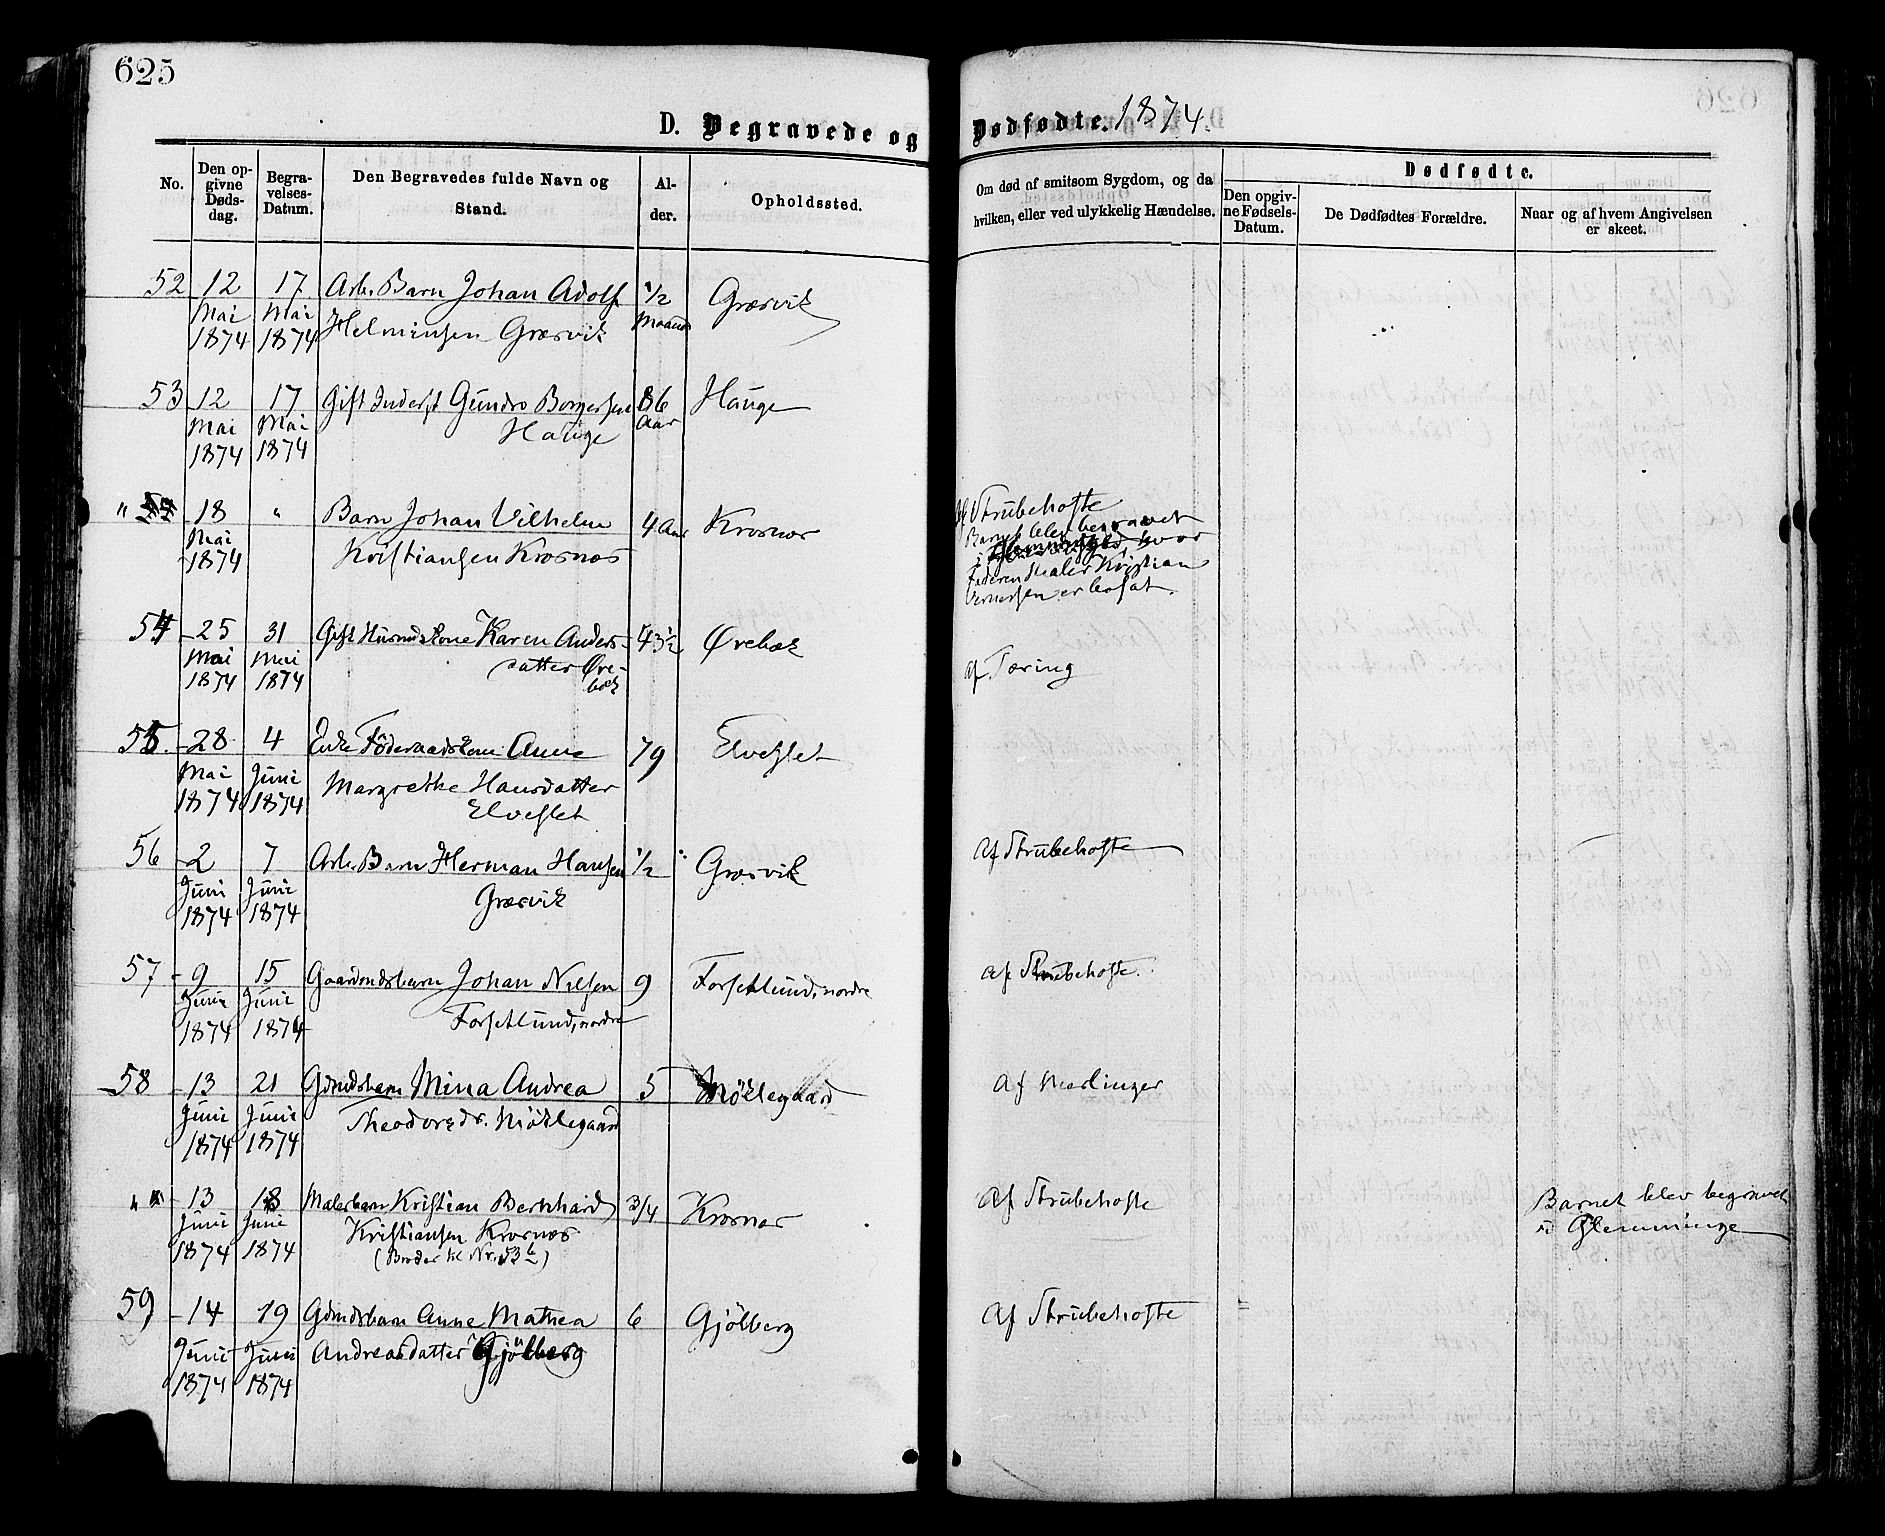 625
D. Begravede og Dødfødte. 1874.
No.
Den opgivne Dødsdag.
Begravelses-Datum.
Den Begravedes fulde Navn og Stand.
Alder.
Opholdssted.
Om død af smitsom Sygdom, og da hvilken, eller ved ulykkelig Hændelse.
Dødfødte.
Den opgivne Fødsels-Datum.
De Dødfødtes Forældre.
Naar og af hvem Angivelsen er skeet.
52 12 17 Arb. Barn Johan Adolf 1/2 Græsvik
Mai Mai Helminsen Græsvik Maaned
1874 1874
53 12 17 Gift Inderst Gundro Borgersen 86 Hauge
Mai Mai Hauge Aar
1874 1874
" 18 " Barn Johan Vilhelm 4 Aar Krosnæs Af Strubehoste
Mai Kristiansen Krosnæs Barnet blev begravet
1874 i hvor
Faderen Maler Kristian
Vernersen er bosat.
54 25 31 Gift Husmdskone Karen Anders- 43 1/2 Ørebæk
Mai Mai datter Øre- af Tæring
1874 1874 bæk
55. 28 4 Enke Föderaadskone Anne 79 Elveslet
Mai Juni Margrethe Hansdatter
1874 1874 Elveslet
56 2 7 Arb. Barn Herman Hansen 1/2 Græsvik Af Strubehoste
Juni Juni Græsvik
1874 1874
57 9 15 Gaardmdsbarn Johan Nilsen 9 Forsetlund, nordre af Strubehoste.
Juni Juni Forsetlund, nordre
1874 1874
58 13 21 Gdmdsbarn Mina Andrea 5 Möklegaard Af Meslinger
Juni Juni Theodorsdr. Möklegaard
1874 1874
" 13 18 Malerbarn Kristian Bernhard 3/4 Krosnæs Af Strubehoste Barnet blev begravet
Juni Juni Kristiansen Krosnæs i Glemminge
1874 1874 (Broder til Nr. 53 b)
59 14 19 Gdmdsbarn Anne Mathea 6 Gjölberg Af Strubehoste
Juni Juni Andreasdatter Gjölberg
1874 1874